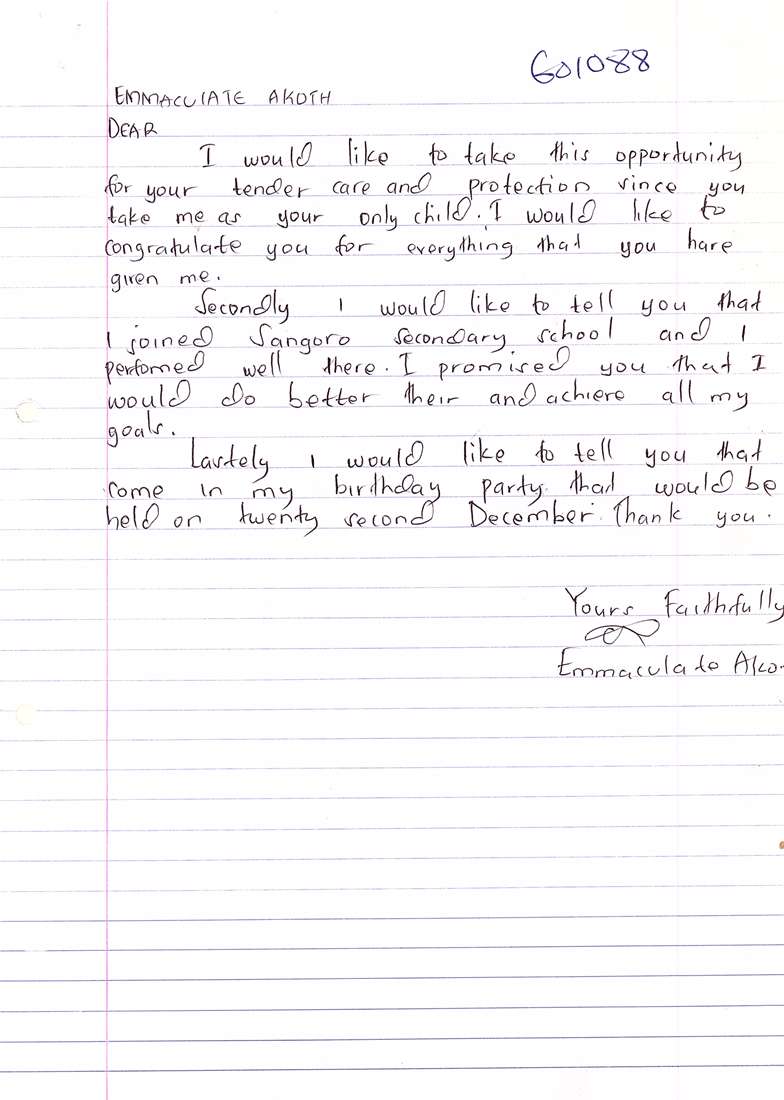 601088
EMMACULATE AKOTH
DEAR
I would like to take this opportunity
for your tender care and protection since you
take me as your only child. I would like to
congratulate you for everything that you have
given me.
Secondly I would like to tell you that
I joined Sangoro secondary school and I
perfomed well there. I promised you that I
would do better their and achieve all my
goals.
Lastely I would like to tell you that
come in my birthday party that would be
held on twenty second December. Thank you.
Yours Faithfully
Emmaculate Ako